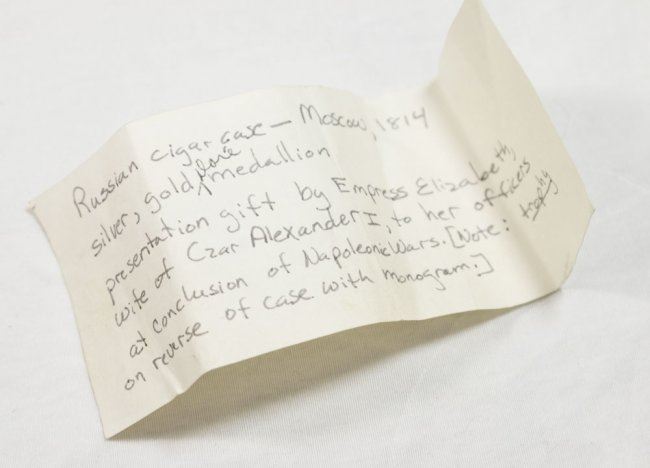 Russian cigar case — Moscow, 1814
silver, gold medallion
presentation gift by Empress Elizabeth,
wife of Czar Alexander I, to her officers
at conclusion of Napoleonic Wars. [Note: trophy
on reverse of case with monogram.]